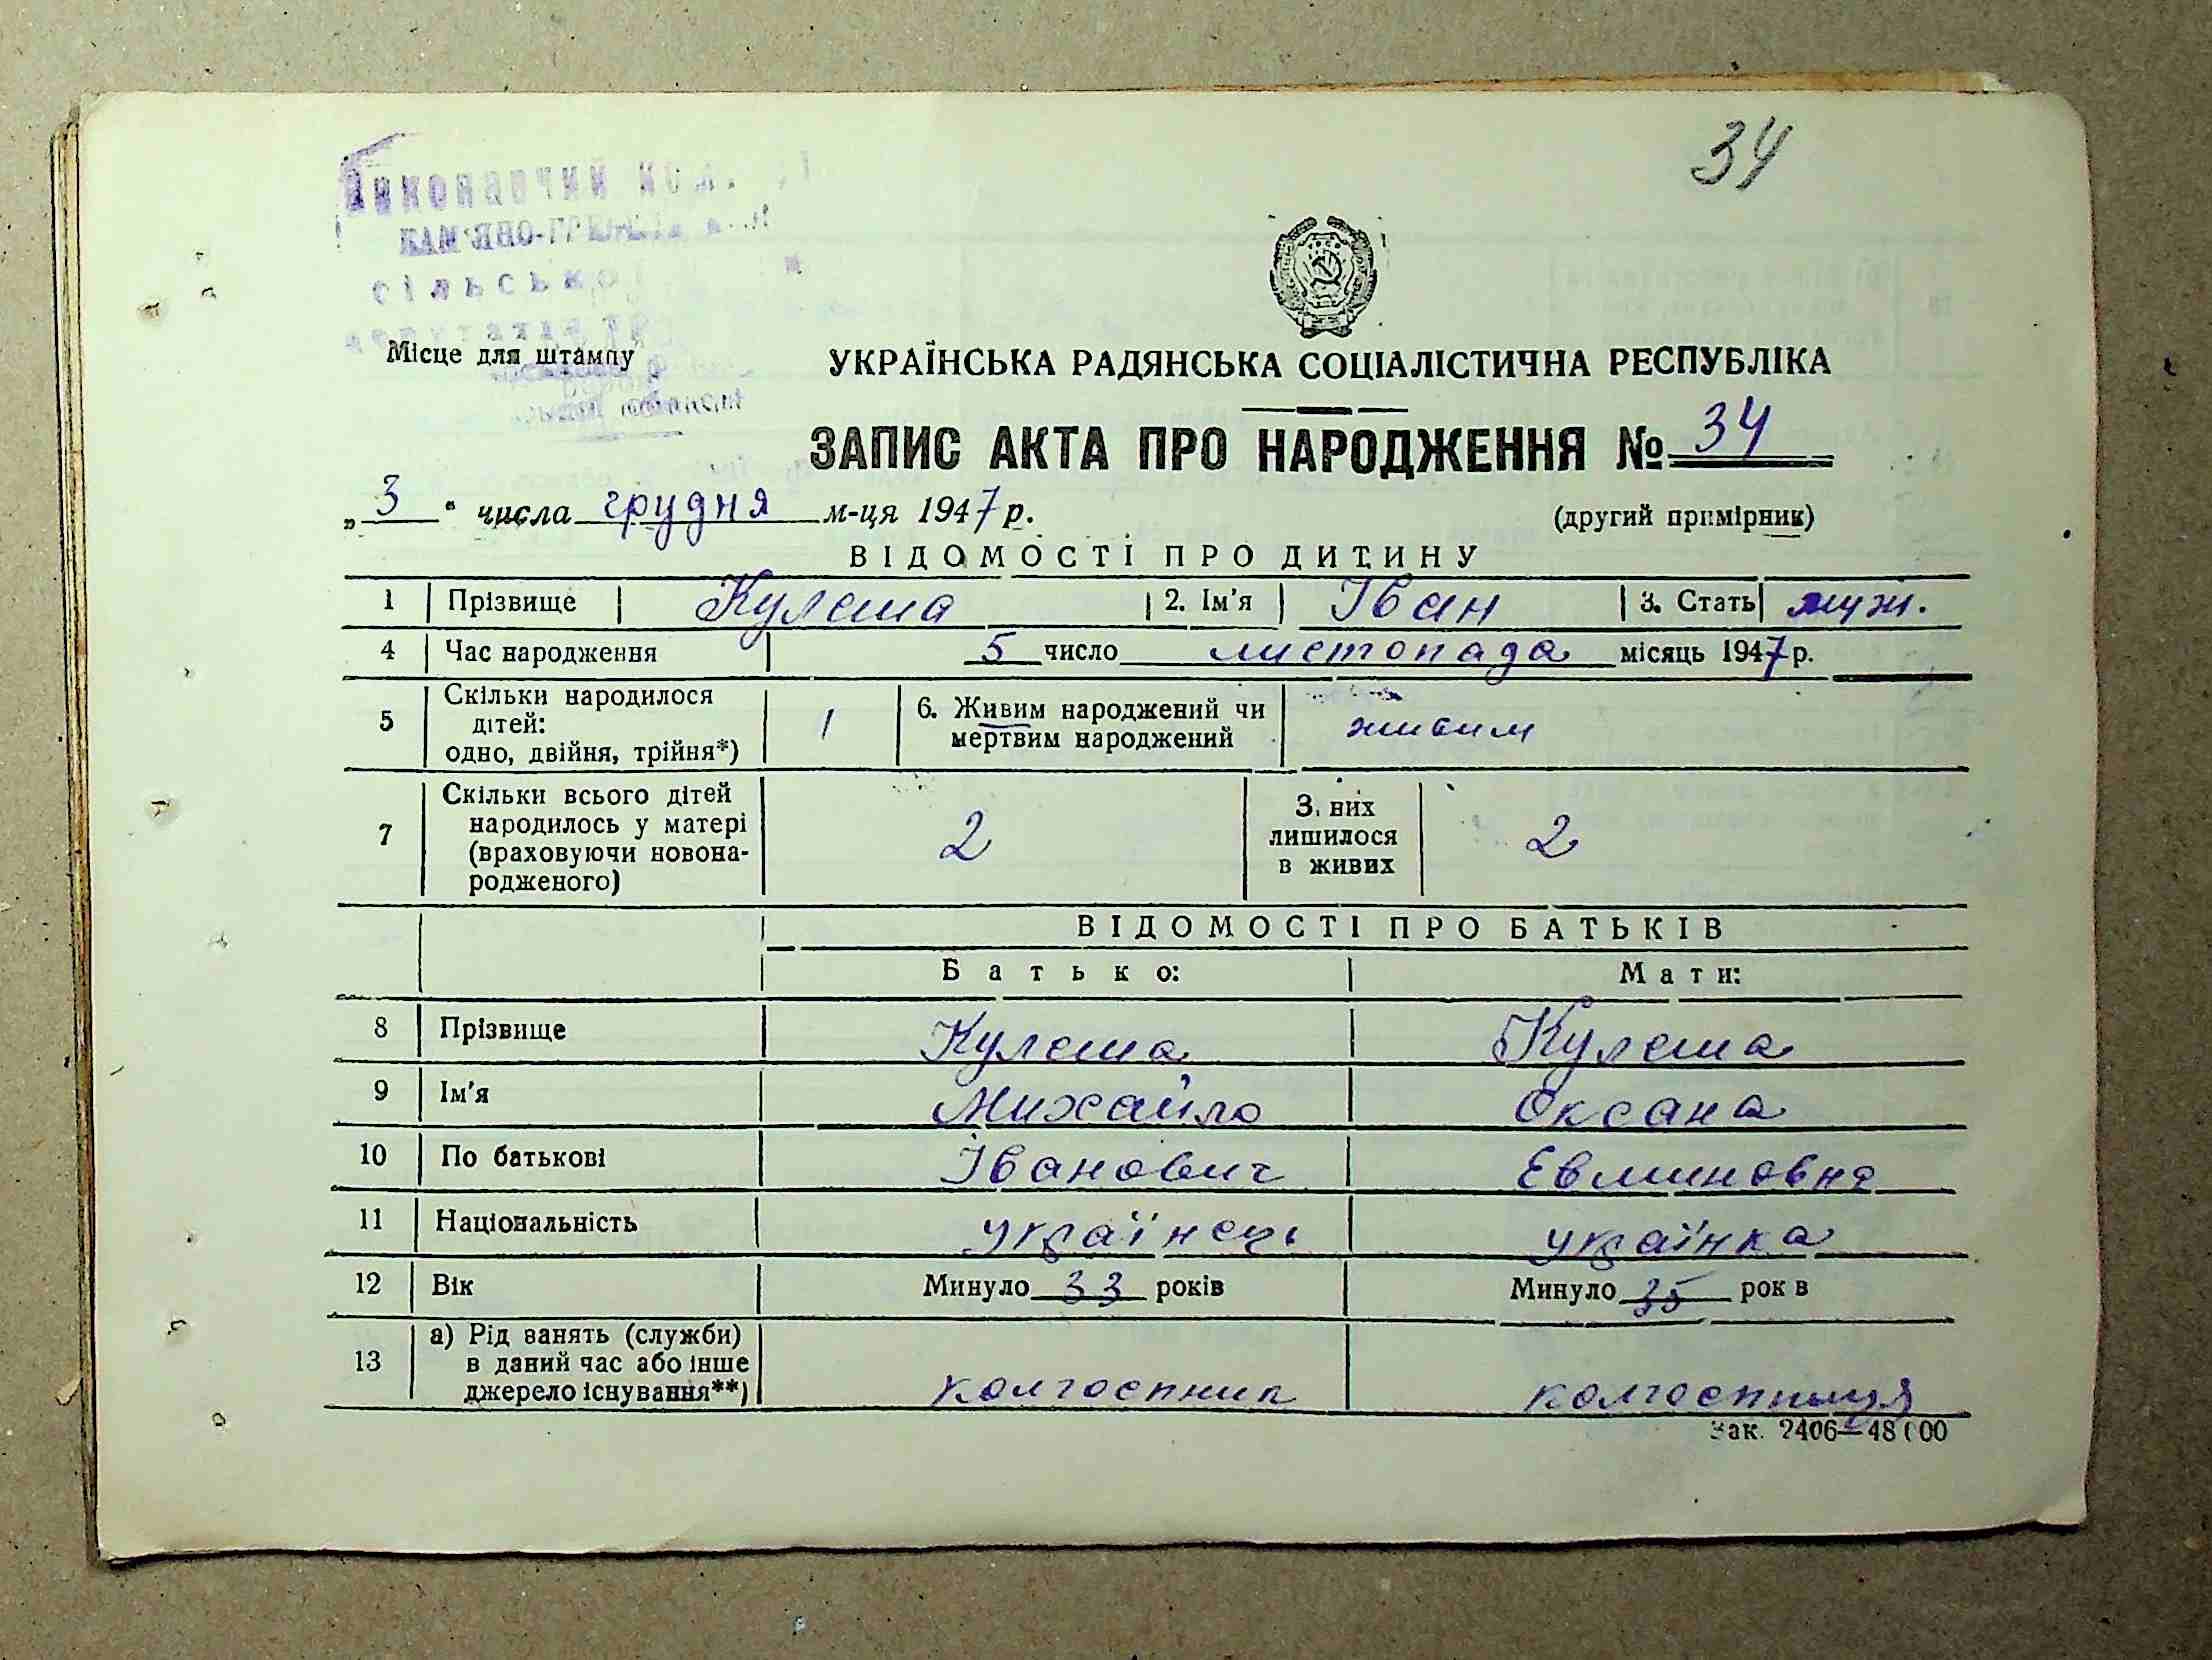 34
Виконавчий
КАМ'ЯНО-
сільської
Місце для штампу
області
УКРАЇНСЬКА РАДЯНСЬКА СОЦІАЛІСТИЧНА РЕСПУБЛІКА
ЗАПИС АКТА ПРО НАРОДЖЕННЯ № 34
„3“ числа грудня м-ця 1947 р. (другий примірник)
ВІДОМОСТІ ПРО ДИТИНУ
1 Прізвище Кулеша 2. Ім'я Іван 3. Стать муж.
4 Час народження 5 число листопада місяць 1947 р.
5 Скільки народилося дітей: одно, двійня, трійня*) 1 6. Живим народжений чи мертвим народжений живим
7 Скільки всього дітей народилось у матері (враховуючи новонародженого) 2 З них лишилося в живих 2
ВІДОМОСТІ ПРО БАТЬКІВ
Батько: Мати:
8 Прізвище Кулеша Кулеша
9 Ім'я Михайло Оксана
10 По батькові Іванович Евминовна
11 Національність українець українка
12 Вік Минуло 33 років Минуло 35 років
13 а) Рід занять (служби) в даний час або інше джерело існування**) колгоспник колгоспниця
Зак. 2406—48000